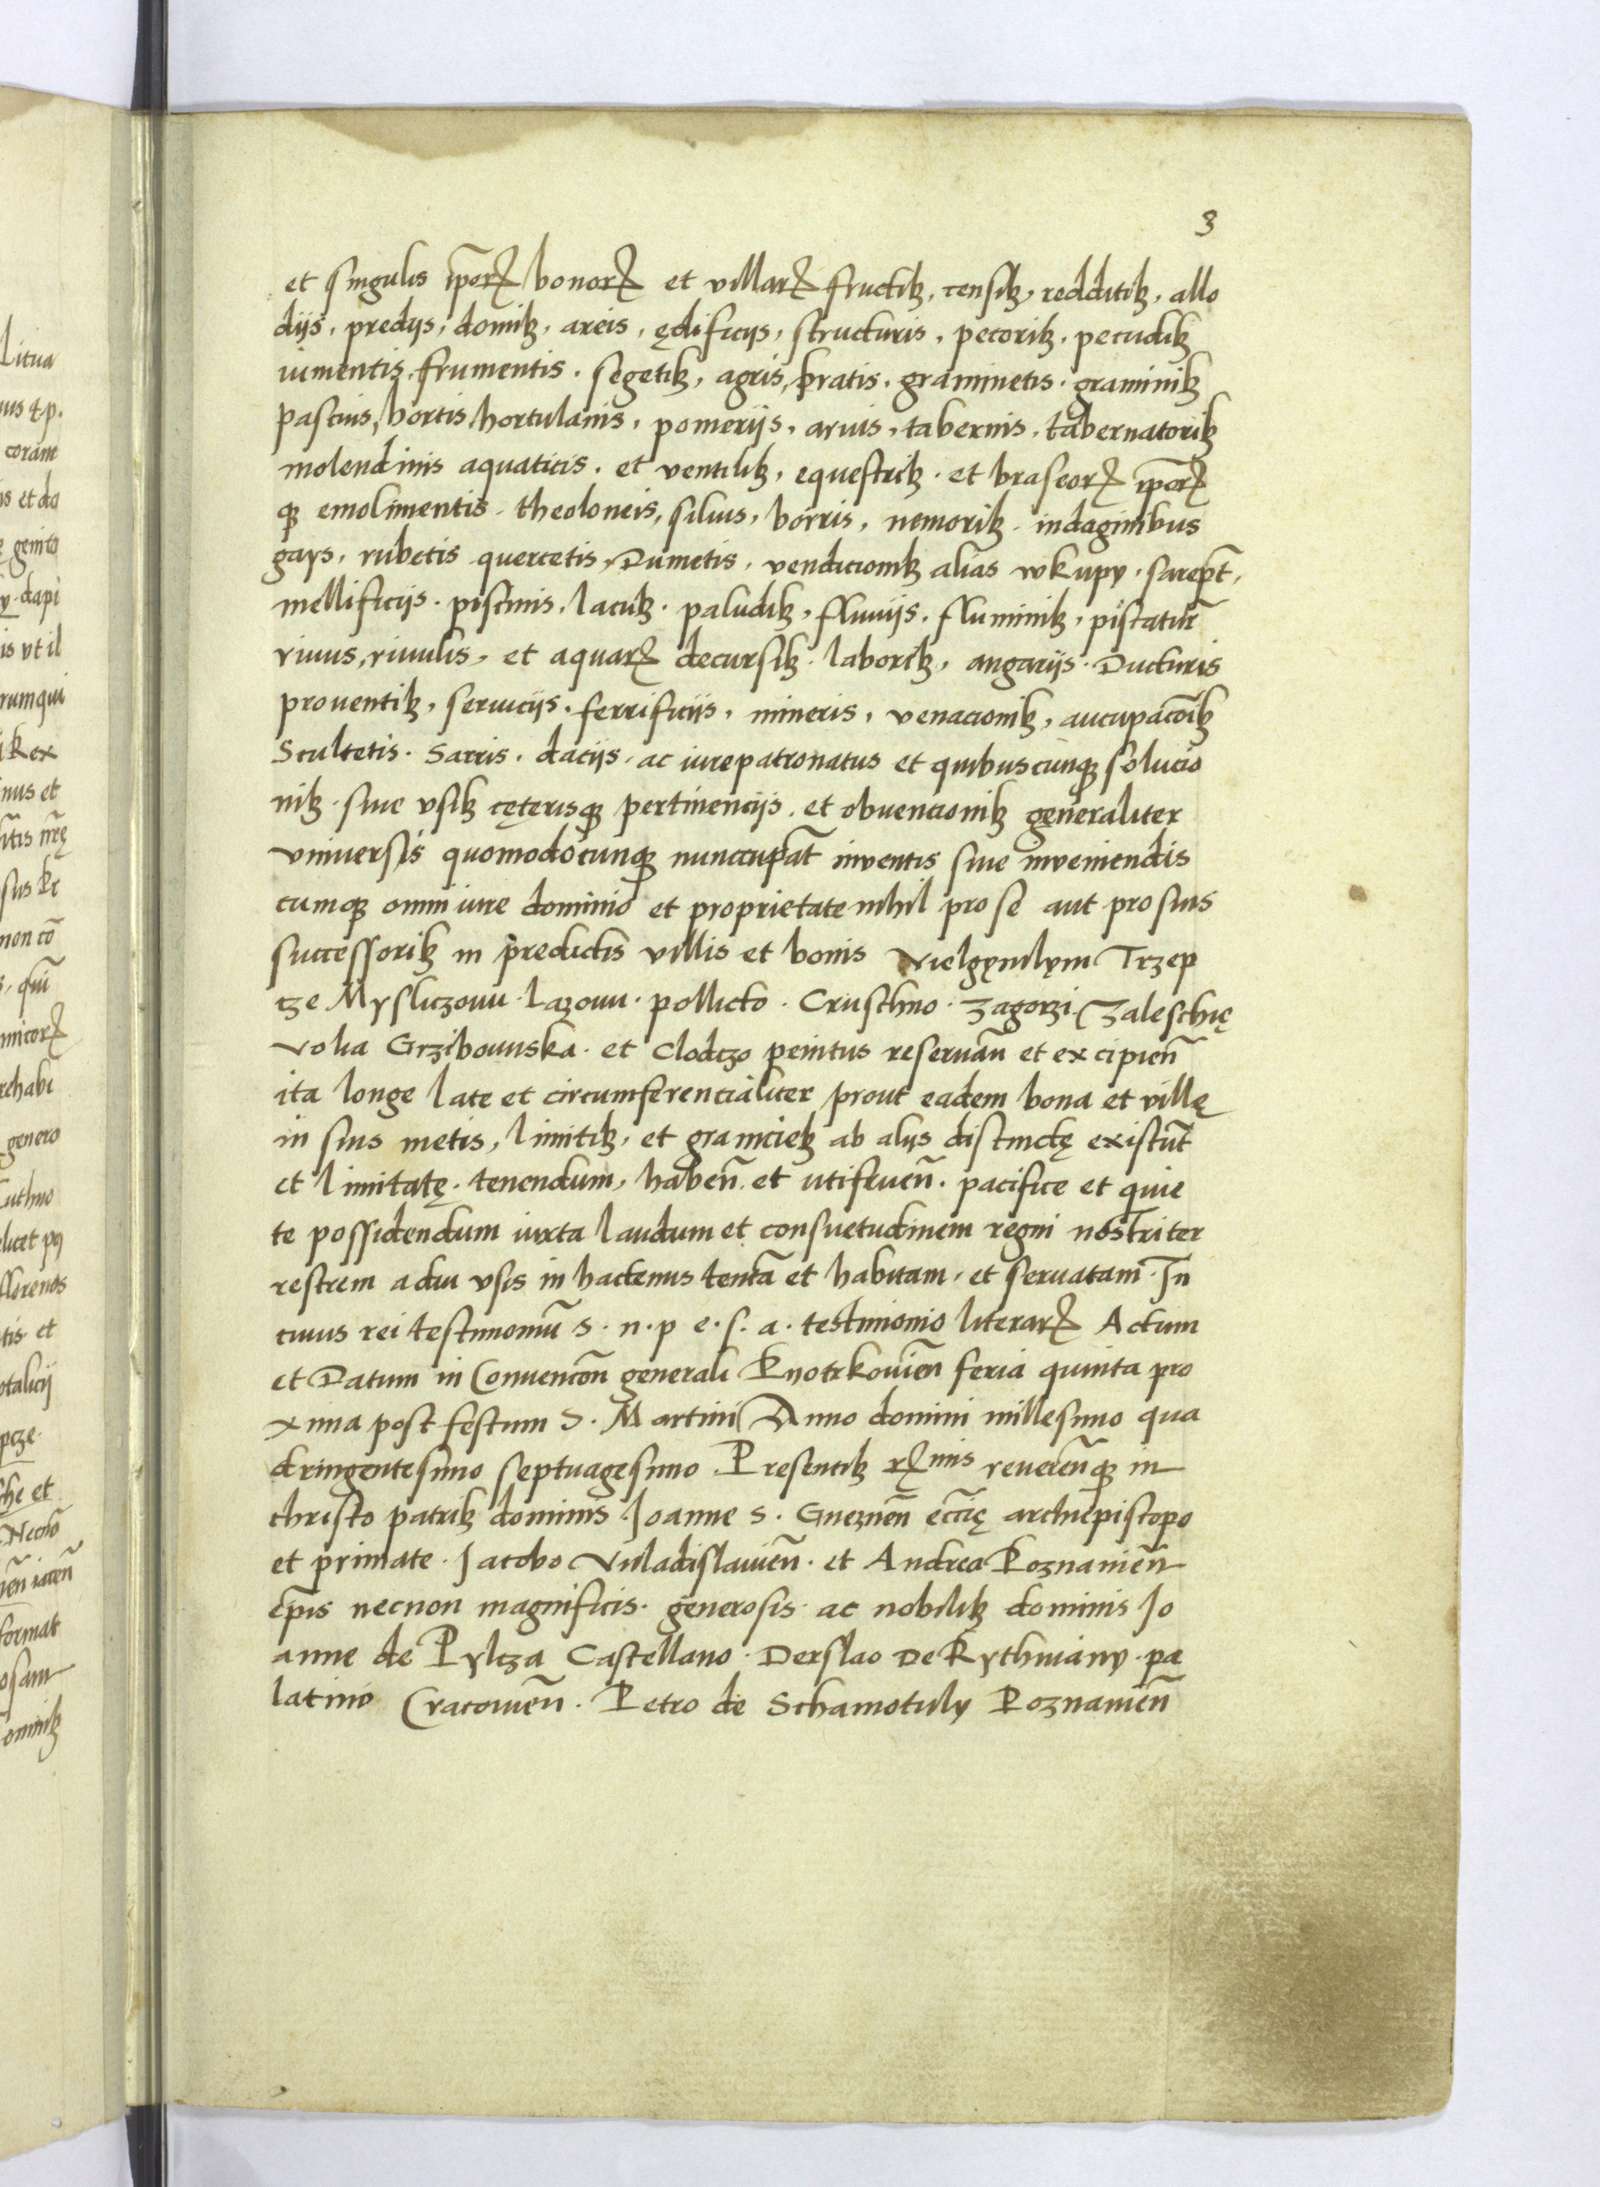 3
et singulis ip̃orꝝ bonorꝝ et villarꝝ fructibꝫ, censibꝫ, redditibꝫ, allo
diis, prediis, domibꝫ, areis, ędificiis, structuris, pecoribꝫ, pecudibꝫ
iumentis, frumentis, segetibꝫ, agris, pratis, graminetis, graminibꝫ
pascuis, hortis, hortulanis, pomeriis, aruis, tabernis, tabernatoribꝫ
molendinis aquaticis, et ventilibꝫ, equestribꝫ, et braseorꝝ ip̃orꝝ
qꝫ emolimentis, theoloneis, siluis, borris, nemoribꝫ, indaginibus
gays, rubetis quercetis, Dumetis, vendicionibꝫ alias wkupy, sarept̃,
mellificiis, piscinis, lacubꝫ, paludibꝫ, fluuiis, fluminibꝫ, piscatur̃
riuus, riuulis, et aquarꝝ decursibꝫ, laboribꝫ, angariis, Ducturis
prouentibꝫ, seruiciis, ferrificiis, mineris, venacionibꝫ, aucupac̃oibꝫ
Scultetis, Sarris, daciis, ac iurepatronatus et quibuscunqꝫ solucio
nibꝫ, siue vsibꝫ cęterisqꝫ pertinenciis, et obuencionibꝫ generaliter
vniuersis quomodocunqꝫ nunccupat̃ inventis siue inveniendis
cumqꝫ omni iure dominio et proprietate nihil pro se aut pro suis
successoribꝫ in predictis villis et bonis Vielgymlym Trzep
cze Mysliczouu, Lazouu, pollicto, Cruschno, Zagorzi, Zaleschię
Volia Grzibouuska, et Clodzo penitus reseruan̄ et excipien̄
ita longe late et circumferencialiter prout eadem bona et villę
in suis metis, limitibꝫ, et graniciebꝫ ab alys distinctę existũt
et limitatę, tenendum, haben̄ et utifruen̄, pacifice et quie
te possidendum iuxta laudum et consuetudinem regni nostri ter
restrem a diu vsis in hactenus tentã et habitam, et seruatam. In
cuius rei testimoniũ s. n. p e. s. a. testimonio literarꝝ Actum
et Datum in Conuenc̃on generali Pyotrkouien̄ feria quinta pro
xima post festum S. Martini Anno domini millesimo qua
dringentesimo septuagesimo. Presentibꝫ rꝝmis reueren̄qꝫ in
christo patribꝫ dominis Joanne S. Gneznen̄ ecc̃ię archiepiscopo
et primate, Jacobo Vuladislauien̄, et Andrea Poznanien̄
ep̃is necnon magnificis, generosis ac nobilibꝫ dominis Jo
anne de Pylcza Castellano, Derslao De Rythwiany, pa
latino Cracouien̄, Petro de Schamotuly Poznanien̄